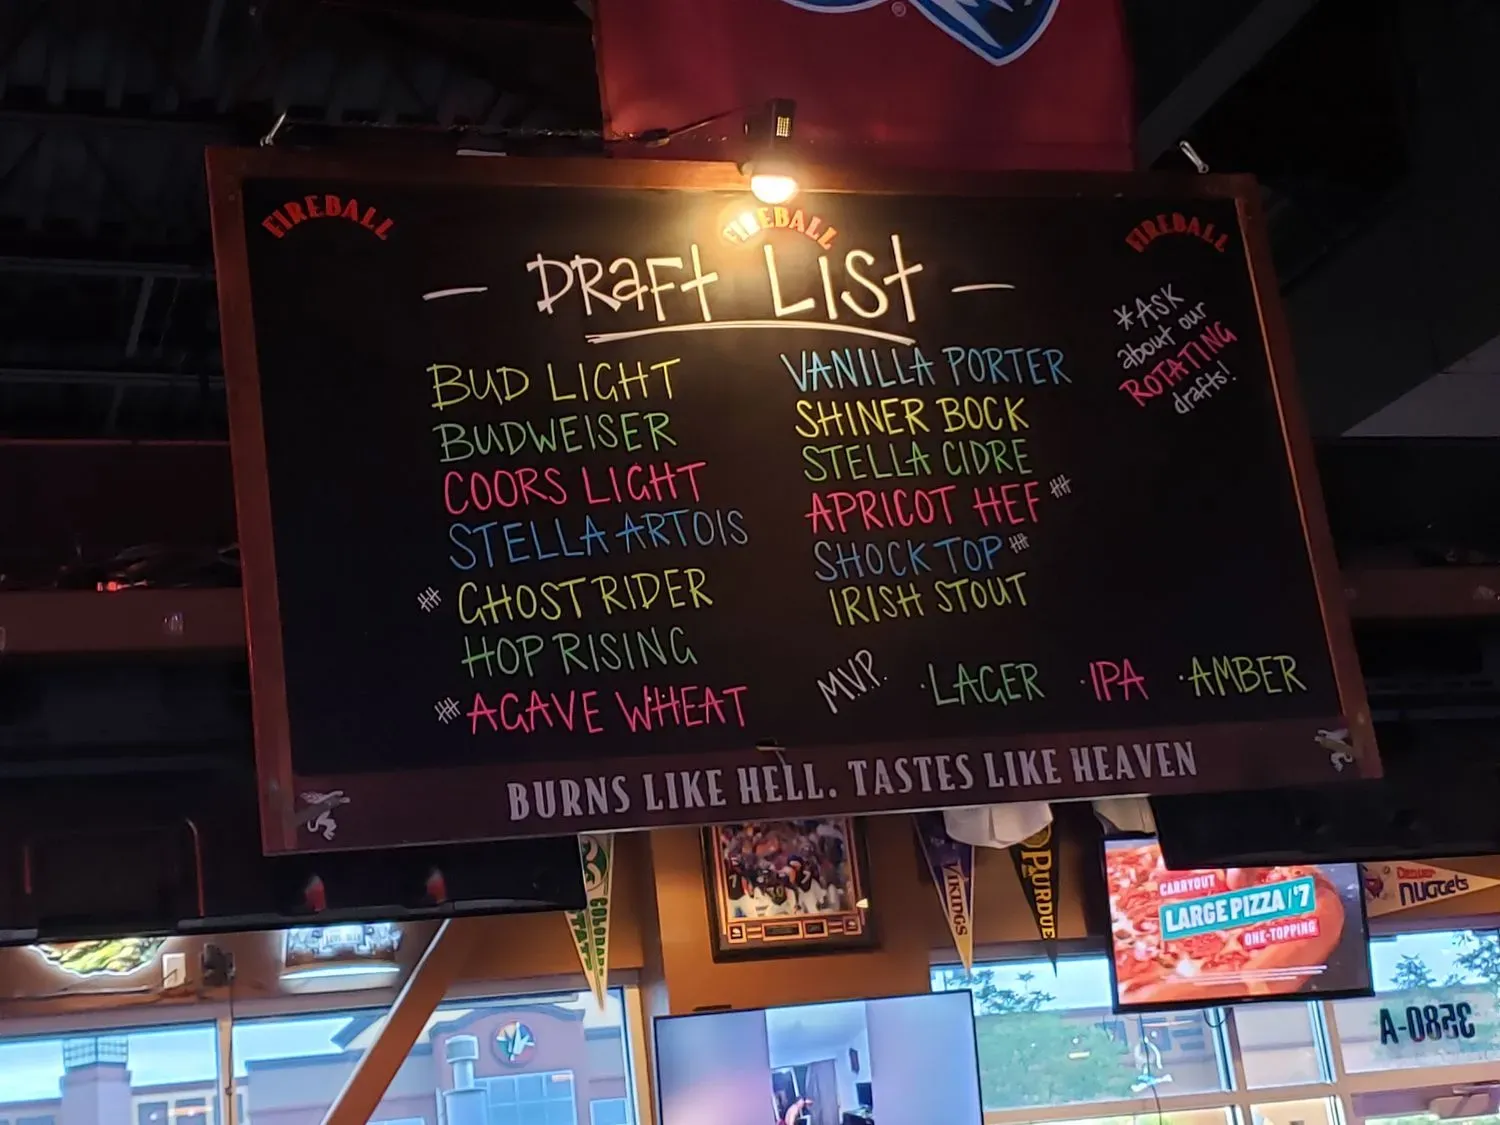 FIREBALL
FIREBALL
FIREBALL
— DRAFT LIST —
*ASK
about our
ROTATING
drafts!
BUD LIGHT
BUDWEISER
COORS LIGHT
STELLA ARTOIS
GHOST RIDER
HOP RISING
AGAVE WHEAT
VANILLA PORTER
SHINER BOCK
STELLA CIDRE
APRICOT HEF
SHOCK TOP
IRISH STOUT
MVP. ·LAGER ·IPA ·AMBER
BURNS LIKE HELL. TASTES LIKE HEAVEN
COLORADO
STATE
VIKINGS
PURDUE
CARRYOUT
LARGE PIZZA | $7
ONE-TOPPING
DENVER
NUGGETS
3580-A